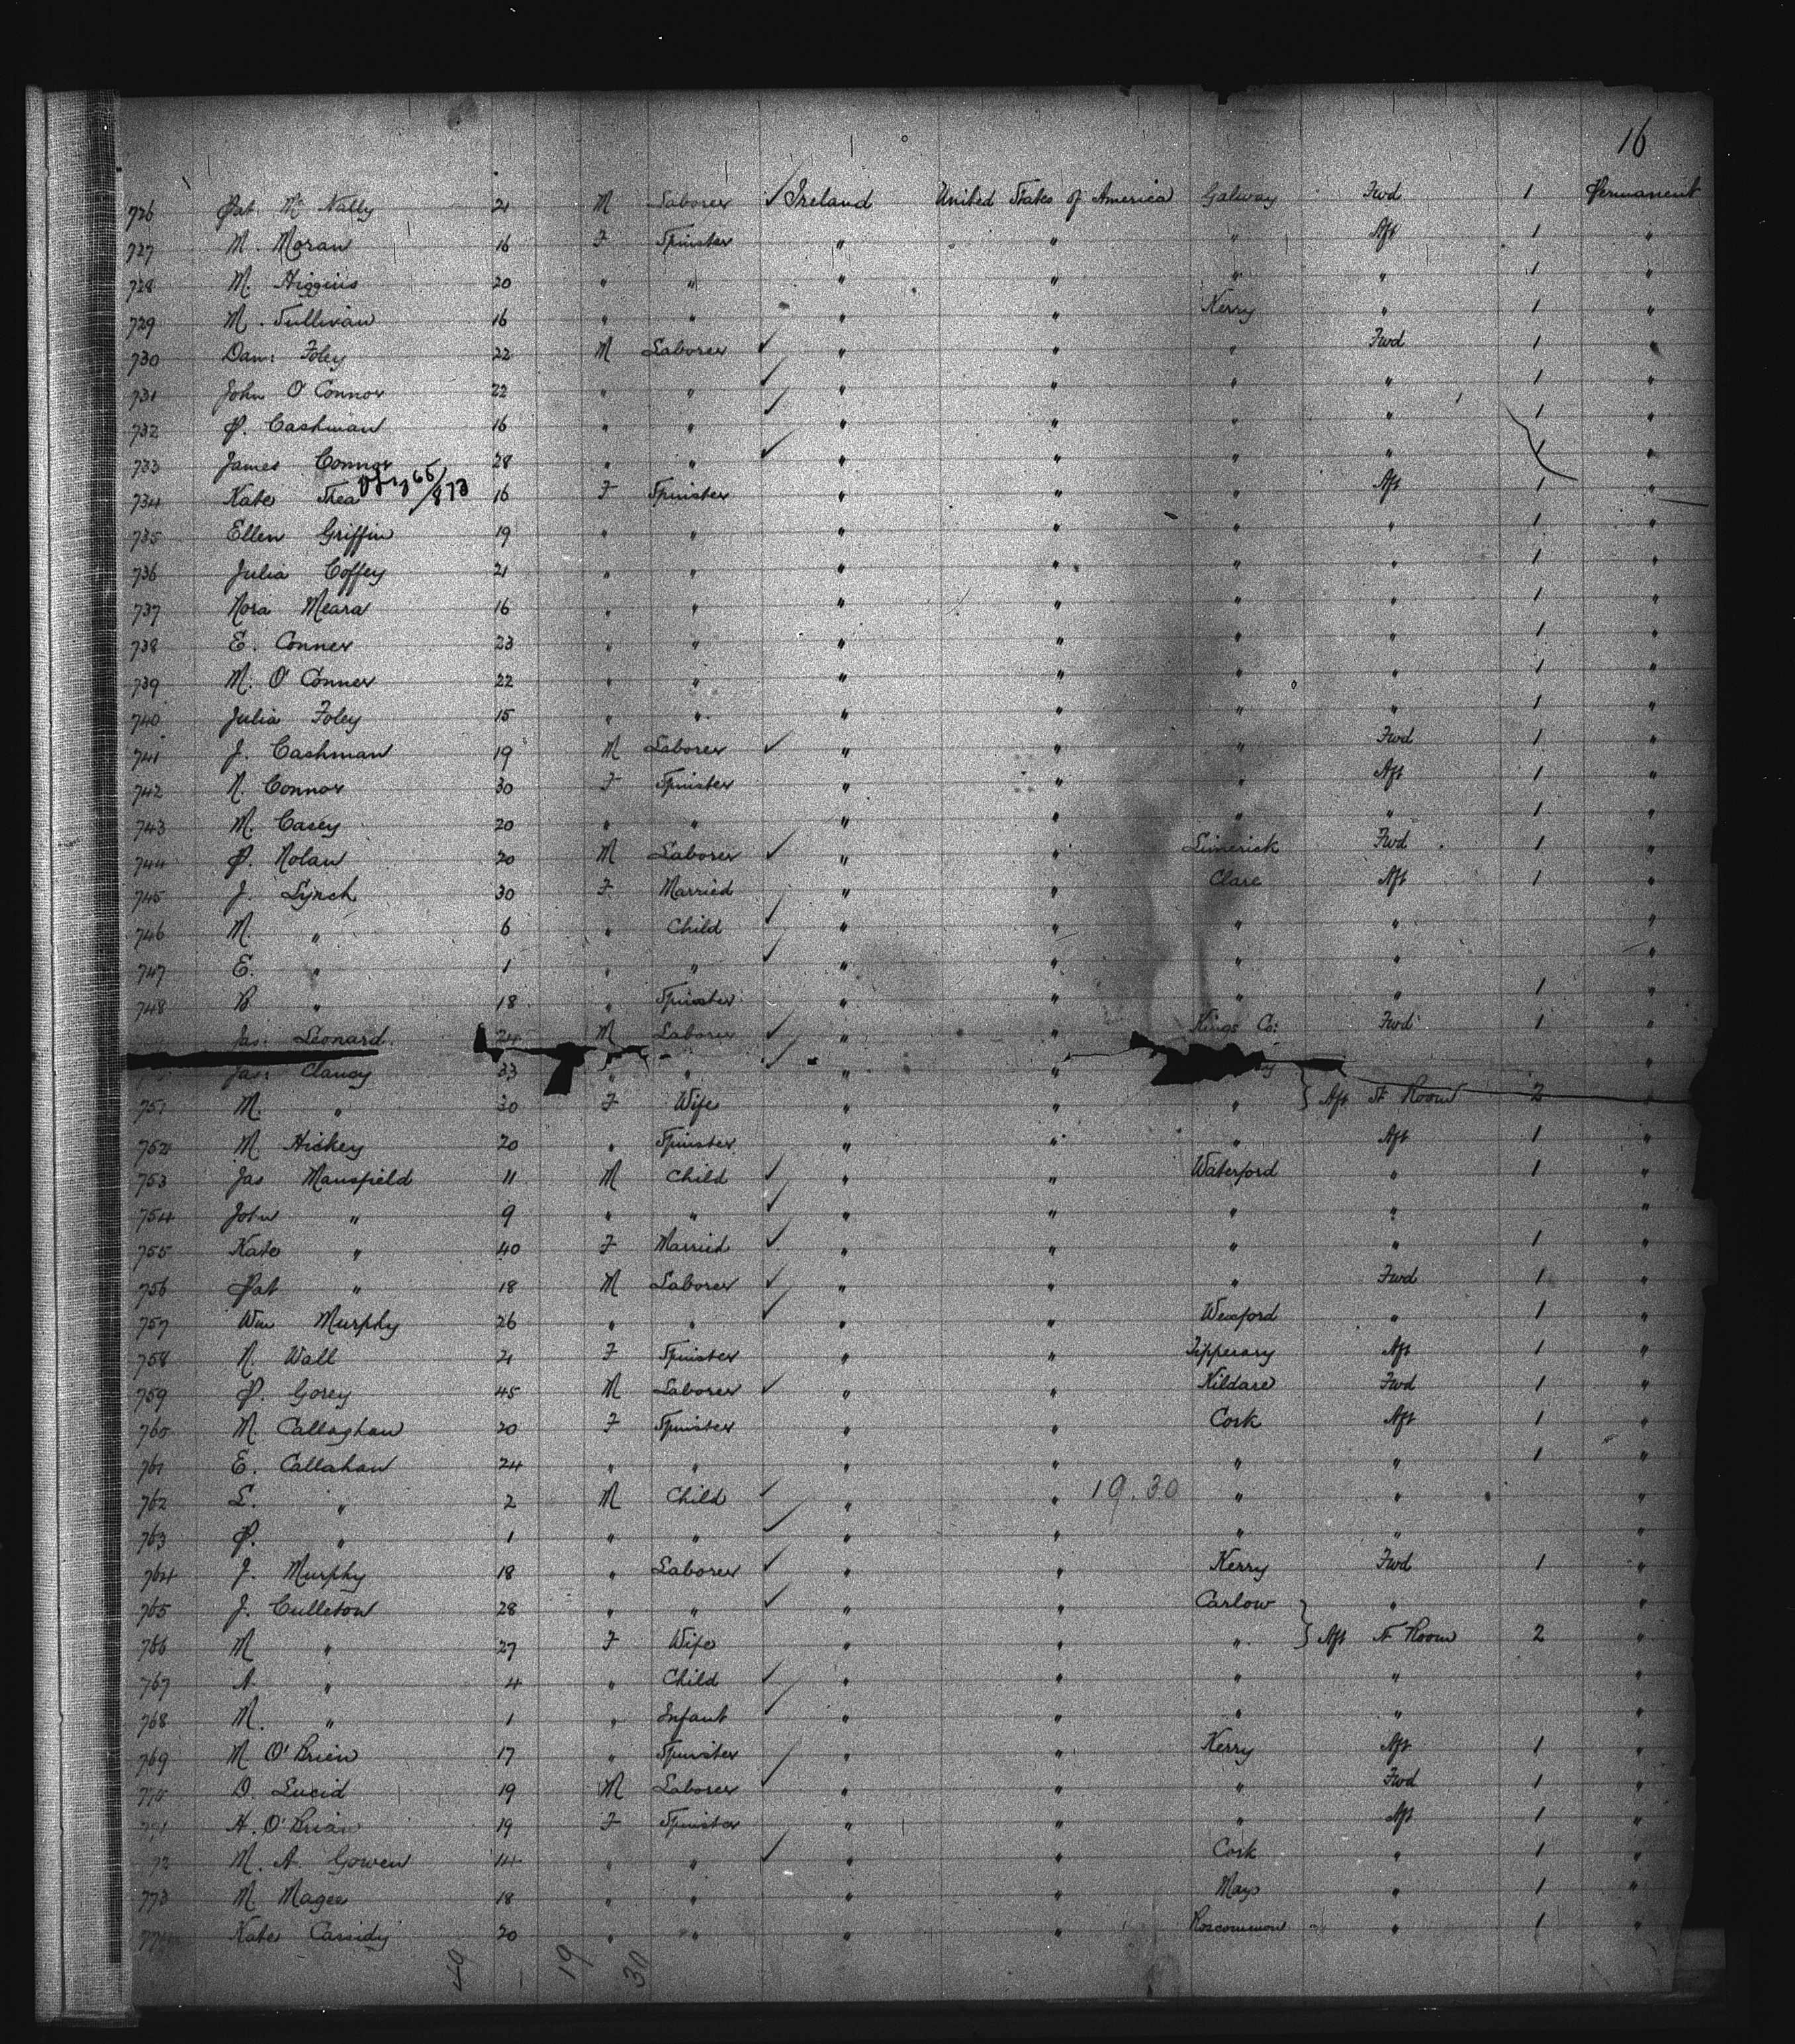 16
726 Pat Mc Nally 21 M Laborer ✓ Ireland United States of America Galway Fwd 1 Permanent
727 M. Moran 16 F Spinster " " " Aft 1 "
728 M. Higgins 20 " " " " " " 1 "
729 M. Sullivan 16 " " " " Kerry " 1 "
730 Dan: Foley 22 M Laborer ✓ " " " Fwd 1 "
731 John O'Connor 22 " " ✓ " " " " 1 "
732 P. Cashman 16 " " ✓ " " " " 1 "
733 James Connor 28 " " ✓ " " " " 1 "
734 Kate Shea 65/873 16 F Spinster " " " Aft 1 "
735 Ellen Griffin 19 " " " " " " 1 "
736 Julia Coffey 21 " " " " " " 1 "
737 Nora Meara 16 " " " " " " 1 "
738 E. Conner 23 " " " " " " 1 "
739 M. O'Conner 22 " " " " " " 1 "
740 Julia Foley 15 " " " " " " 1 "
741 J. Cashman 19 M Laborer ✓ " " " Fwd 1 "
742 N. Connor 30 F Spinster " " " Aft 1 "
743 M. Casey 20 " " " " " " 1 "
744 P. Nolan 20 M Laborer ✓ " " Limerick Fwd 1 "
745 J. Lynch 30 F Married " " Clare Aft 1 "
746 M. " 6 " Child ✓ " " " " "
747 E. " 1 " " ✓ " " " " "
748 B " 18 " Spinster " " " " 1 "
Jas: Leonard 24 M Laborer ✓ " " Kings Co: Fwd 1 "
Jas: Clancy 33 " " ✓ " " "
751 M. " 30 F Wife " " " } Aft St Room 2 "
752 M Hickey 20 " Spinster " " " Aft 1 "
753 Jas Mansfield 11 M Child ✓ " " Waterford " 1 "
754 John " 9 " " ✓ " " " " "
755 Kate " 40 F Married ✓ " " " " 1 "
756 Pat " 18 M Laborer ✓ " " " Fwd 1 "
757 Wm Murphy 26 " " ✓ " " Wexford " 1 "
758 N. Wall 21 F Spinster " " Tipperary Aft 1 "
759 P. Gorey 45 M Laborer ✓ " " Kildare Fwd 1 "
760 M. Callaghan 20 F Spinster " " Cork Aft 1 "
761 E. Callahan 24 " " " " " " 1 "
762 L. " 2 M Child ✓ " " 19.30 " " "
763 P. " 1 " " ✓ " " " " "
764 J. Murphy 18 " Laborer ✓ " " Kerry Fwd 1 "
765 J. Culleton 28 " " ✓ " " Carlow " "
766 M " 27 F Wife " " " } Aft St Room 2 "
767 A " 4 " Child ✓ " " " " "
768 M. " 1 " Infant ✓ " " " " "
769 M O'Brien 17 " Spinster " " Kerry Aft 1 "
770 D. Lucid 19 M Laborer ✓ " " " Fwd 1 "
771 H. O'Brian 19 F Spinster " " " Aft 1 "
72 M. A. Gowen 14 " " ✓ " " Cork " 1 "
773 M Magee 18 " " " " Mayo " 1 "
774 Kate Cassidy 20 " " " " Roscommon " 1 "
49 19 30